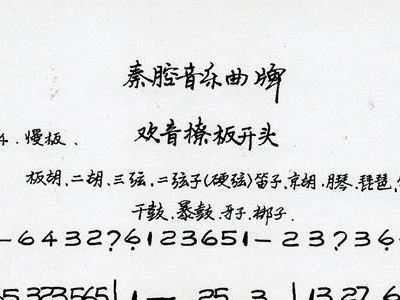 秦腔音乐曲牌
欢音撩板开头
4.慢板.
板胡.二胡.三弦.二弦子(硬弦)笛子.京胡.月琴.琵琶.
干鼓.暴鼓.牙子.梆子.
–64327̣6123651–237̣36
5323565|1— 25 3 |13 27 6